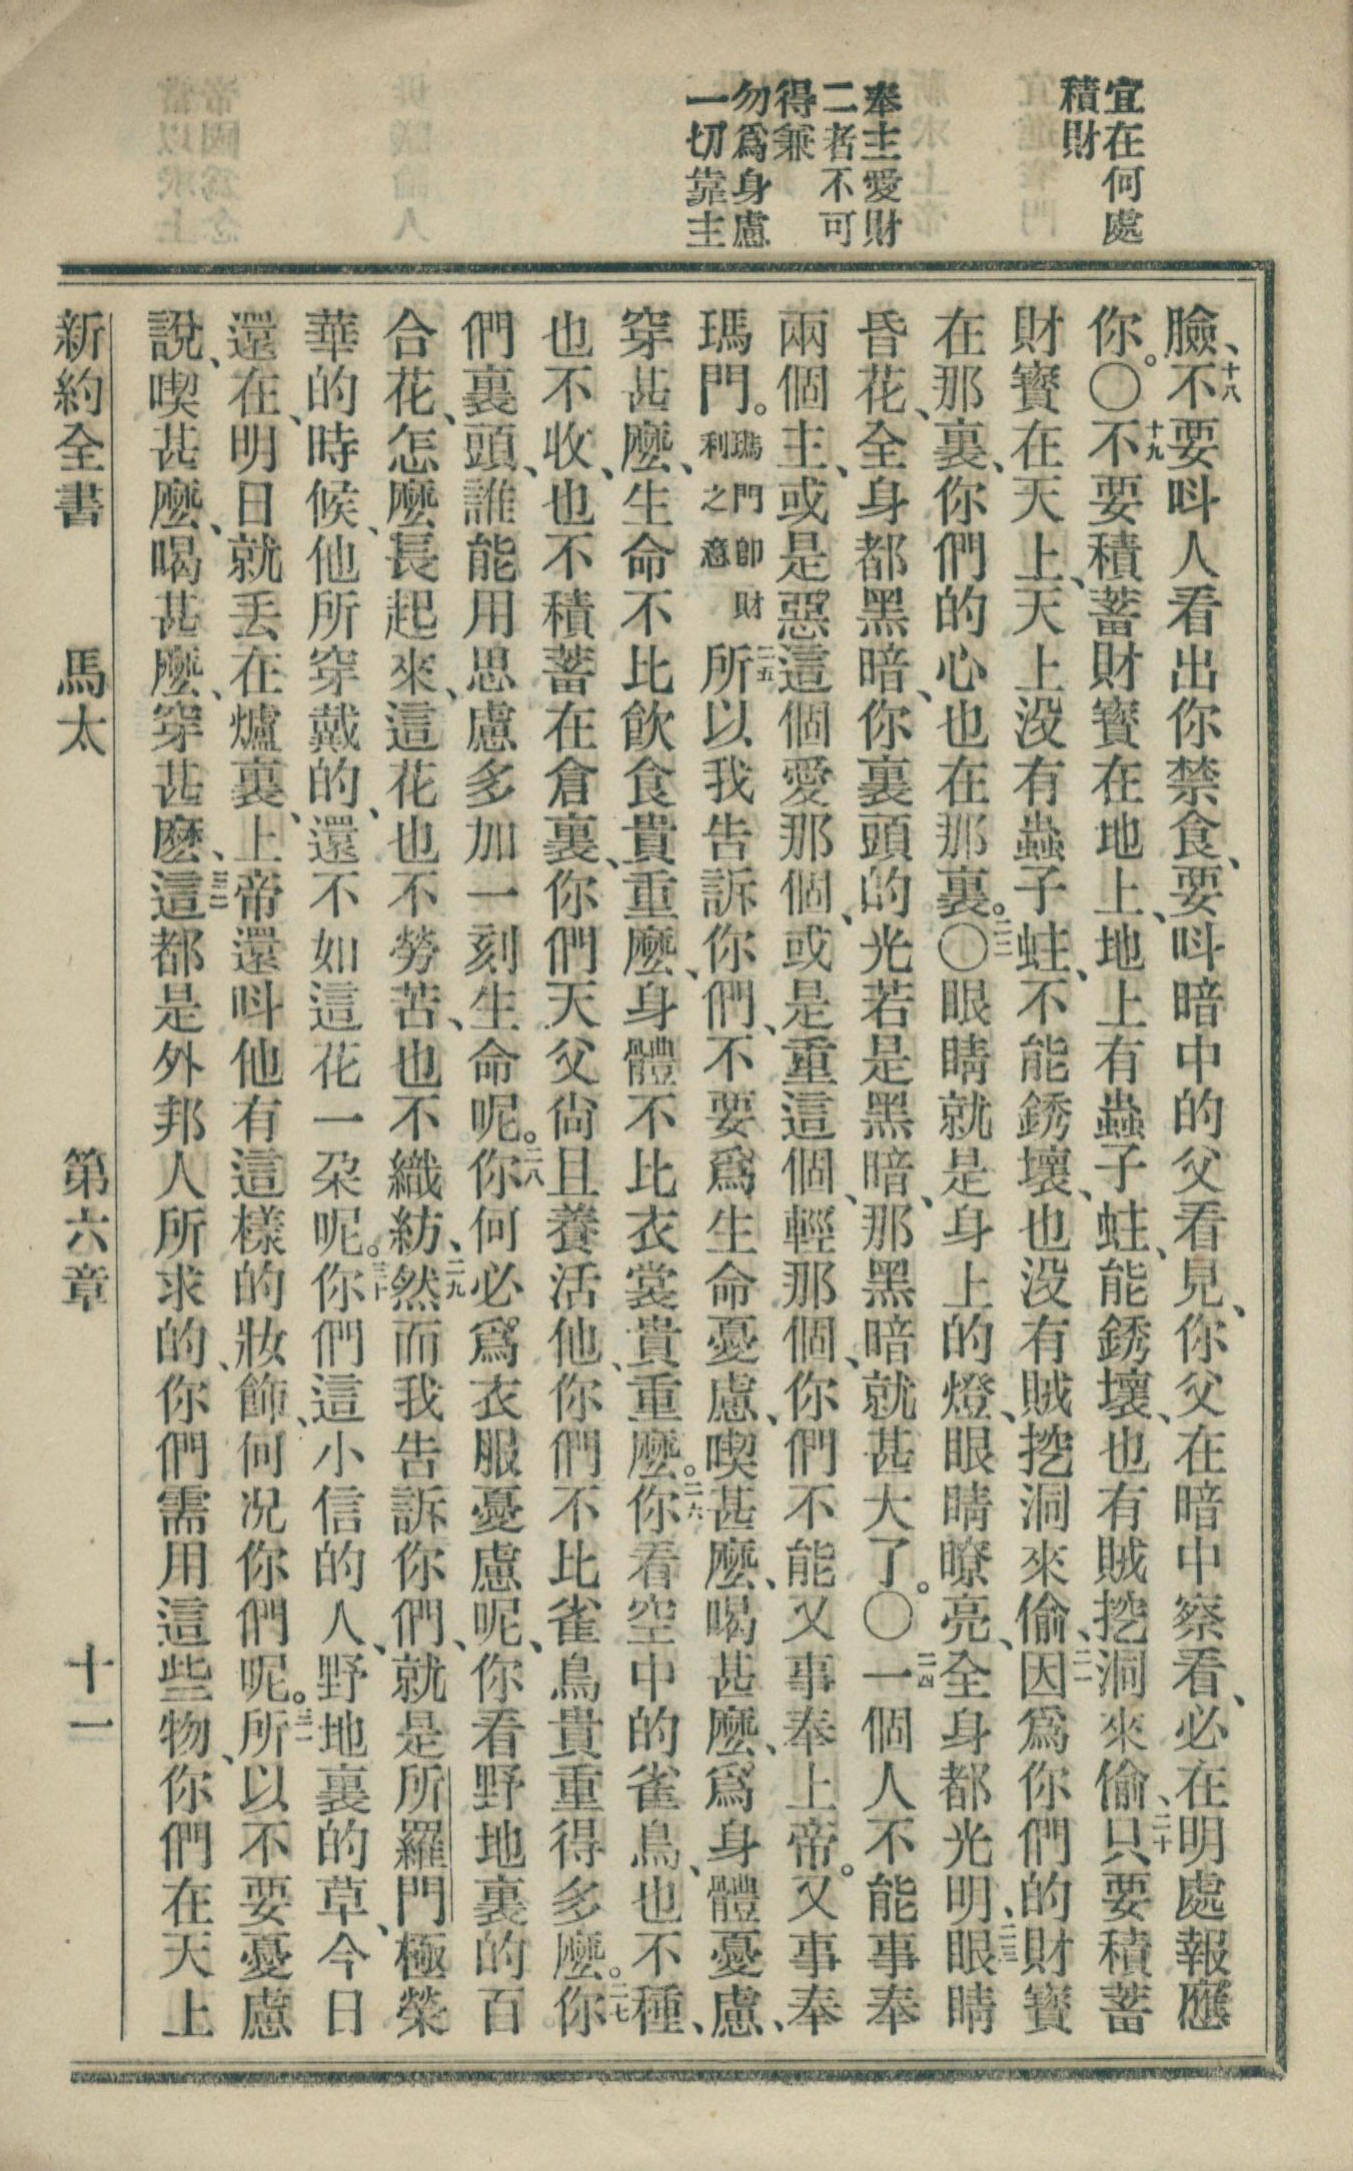 宜在何處
積財
奉主愛財
二者不可
得兼
勿爲身慮
一切靠主
臉、十八不要呌人看出你禁食、要呌暗中的父看見、你父在暗中察看、必在明處報應
你。〇十九不要積蓄財寶在地上、地上有蟲子蛀、能銹壞、也有賊挖洞來偷、二十只要積蓄
財寶在天上、天上没有蟲子蛀、不能銹壞、也没有賊挖洞來偷、二一因爲你們的財寶
在那裏、你們的心也在那裏。〇二二眼睛就是身上的燈、眼睛瞭亮、全身都光明、二三眼睛
昏花、全身都黑暗、你裏頭的光若是黑暗、那黑暗就甚大了。〇二四一個人不能事奉
兩個主、或是惡這個愛那個、或是重這個、輕那個、你們不能又事奉上帝。又事奉
瑪門。瑪門卽財利之意二五所以我告訴你們、不要爲生命憂慮、喫甚麼、喝甚麼、爲身體憂慮、
穿甚麼、生命不比飲食貴重麼、身體不比衣裳貴重麼。二六你看空中的雀鳥、也不種、
也不收、也不積蓄在倉裏、你們天父尙且養活他、你們不比雀鳥貴重得多麼。二七你
們裏頭、誰能用思慮多加一刻生命呢。二八你何必爲衣服憂慮呢、你看野地裏的百
合花、怎麼長起來、這花也不勞苦、也不織紡、二九然而我告訴你們、就是所羅門極榮
華的時候、他所穿戴的、還不如這花一朶呢。三十你們這小信的人、野地裏的草、今日
還在、明日就丟在爐裏、上帝還呌他有這樣的妝飾、何况你們呢。三一所以不要憂慮
說、喫甚麼、喝甚麼、穿甚麼、三二這都是外邦人所求的、你們需用這些物、你們在天上
新約全書　馬太　第六章　十一